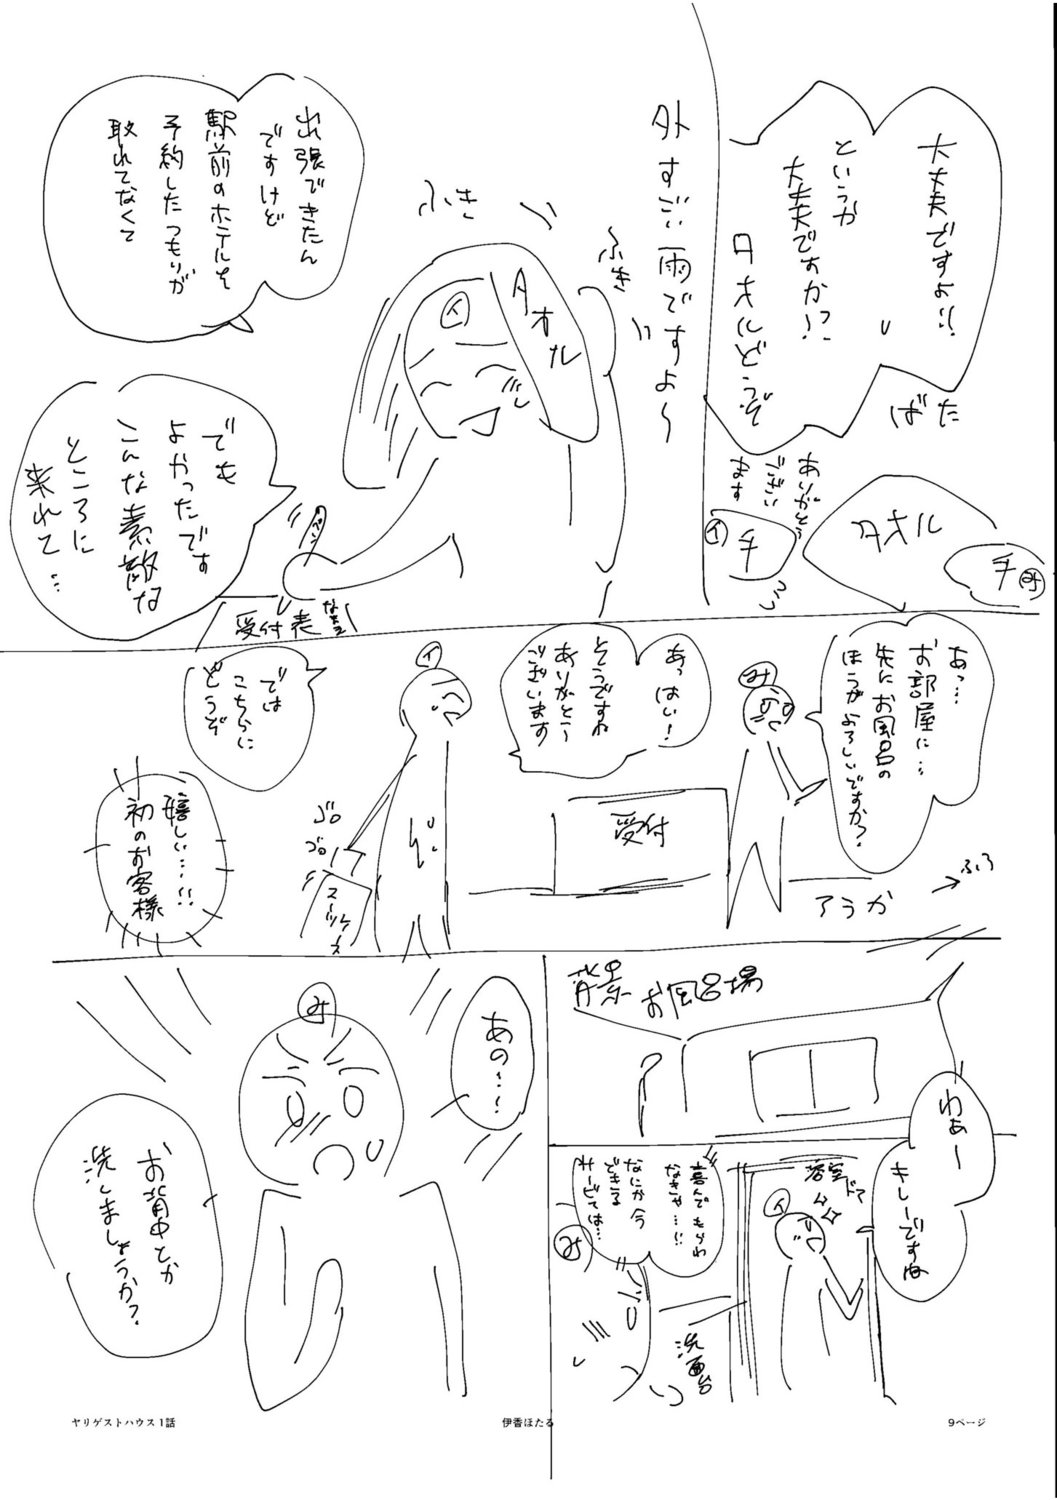 大丈夫ですよ!!
というか
大丈夫ですか!?
タオルどうぞ
ばた
ありがとう
ござい
ます
イ
手
タオル
手
外すごい雨ですよ〜
ふき
ふき
タオル
イ
出張できたん
ですけど
駅前のホテルを
予約したつもりが
取れてなくて
でも
よかったです
こんな素敵な
ところに
来れて…
ペン
受付表
あっ…
お部屋に…
先にお風呂の
ほうがよろしいですか?
み
あっはい!
そうですね
ありがとう
ございます
受付
ろうか
ふろ
イ
では
こちらに
どうぞ
ゴロ
ゴロ
スーツケース
嬉しい…!!
初のお客様
背景
お風呂場
わぁー
キレーですね
浴室ドア
イ
喜んでもらわ
なきゃ…!!
なにか今
できる
サービスは…
み
洗面台
あの…!
み
お背中とか
洗しましょうか?
ヤリゲストハウス1話
伊香ほたる
9ページ